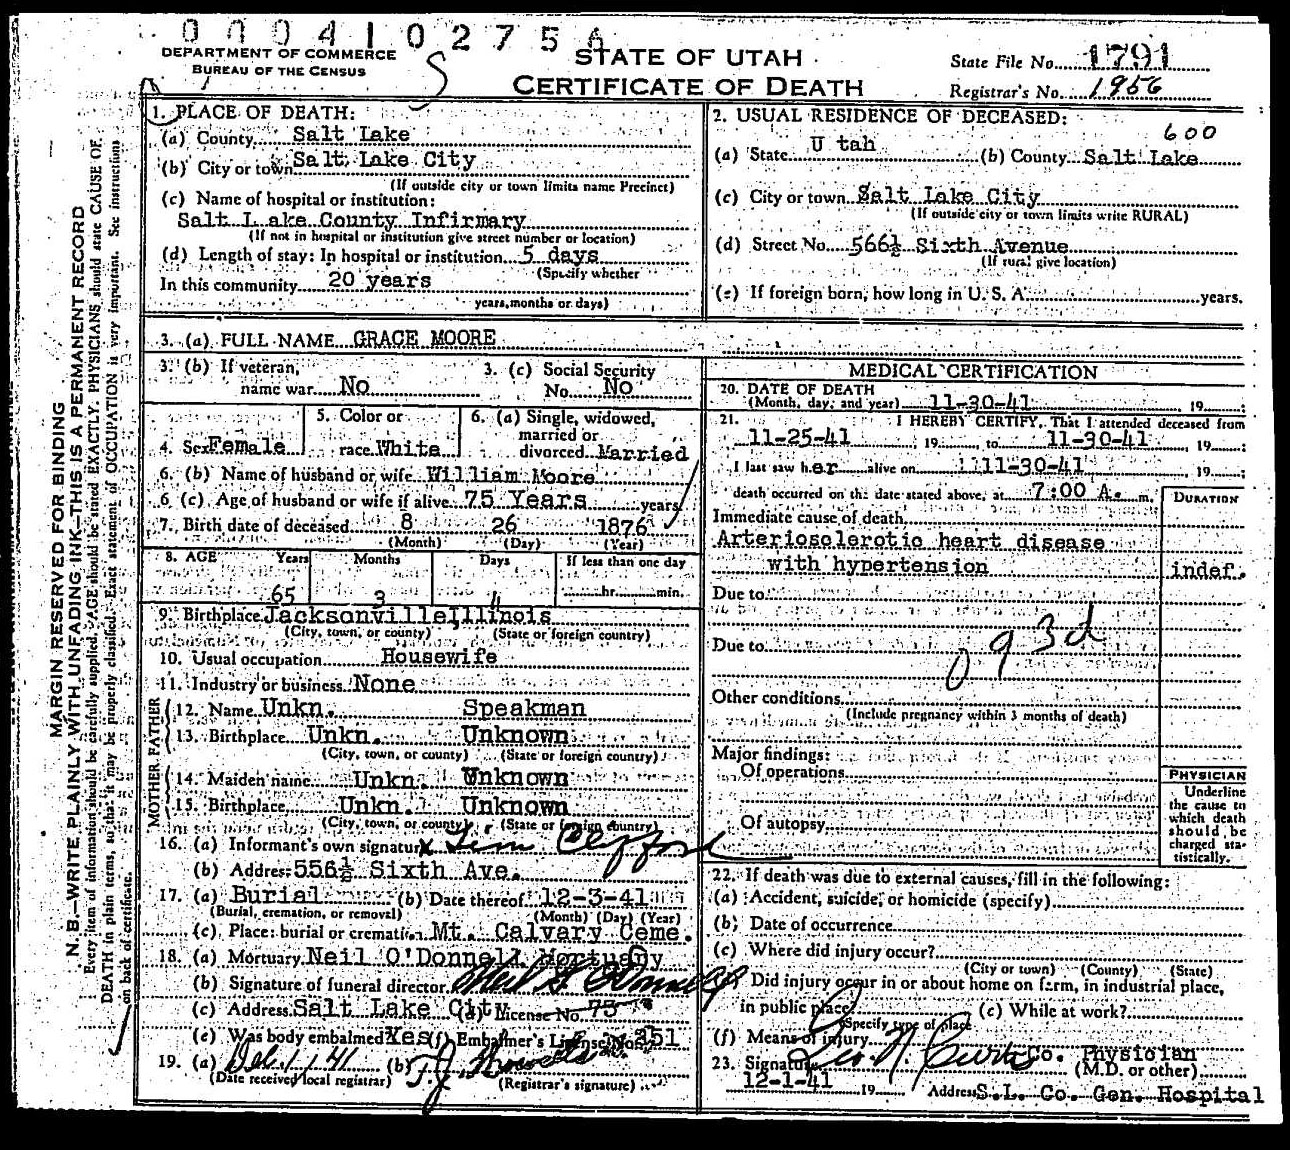 000410275A
DEPARTMENT OF COMMERCE
BUREAU OF THE CENSUS
STATE OF UTAH
CERTIFICATE OF DEATH
State File No. 1791
Registrar's No. 1956
MARGIN RESERVED FOR BINDING
N. B.—WRITE PLAINLY WITH UNFADING INK—THIS IS A PERMANENT RECORD
Every item of information should be carefully supplied. AGE should be stated EXACTLY. PHYSICIANS should state CAUSE OF
DEATH in plain terms, so that it may be properly classified. Exact statement of OCCUPATION is very important. See instructions
on back of certificate.
1. PLACE OF DEATH:
(a) County Salt Lake
(b) City or town Salt Lake City
(If outside city or town limits name Precinct)
(c) Name of hospital or institution:
Salt Lake County Infirmary
(If not in hospital or institution give street number or location)
(d) Length of stay: In hospital or institution 5 days
(Specify whether
In this community 20 years
years, months or days)
2. USUAL RESIDENCE OF DECEASED:
600
(a) State U tah (b) County Salt Lake
(c) City or town Salt Lake City
(If outside city or town limits write RURAL)
(d) Street No. 566½ Sixth Avenue
(If rural give location)
(e) If foreign born, how long in U. S. A. years.
3. (a) FULL NAME GRACE MOORE
3. (b) If veteran,
name war No
3. (c) Social Security
No. No
4. Sex Female
5. Color or
race White
6. (a) Single, widowed,
married or
divorced Married
6. (b) Name of husband or wife William Moore
6 (c) Age of husband or wife if alive 75 Years years
7. Birth date of deceased 8 26 1876
(Month) (Day) (Year)
8. AGE Years Months Days If less than one day
65 3 4 hr. min.
9. Birthplace Jacksonville Illinois
(City, town, or county) (State or foreign country)
10. Usual occupation Housewife
11. Industry or business None
FATHER
12. Name Unkn. Speakman
13. Birthplace Unkn. Unknown
(City, town, or county) (State or foreign country)
MOTHER
14. Maiden name Unkn. Unknown
15. Birthplace Unkn. Unknown
(City, town, or county) (State or foreign country)
16. (a) Informant's own signature X
(b) Address 556½ Sixth Ave.
17. (a) Burial (b) Date thereof 12-3-41
(Burial, cremation, or removal) (Month) (Day) (Year)
(c) Place: burial or cremation Mt. Calvary Ceme.
18. (a) Mortuary Neil O'Donnell Mortuary
(b) Signature of funeral director Neil O'Donnell
(c) Address Salt Lake City (d) License No. 73
(e) Was body embalmed Yes (f) Embalmer's License No. 251
19. (a) Dec. 1, 41 (b) T. J.
(Date received local registrar) (Registrar's signature)
MEDICAL CERTIFICATION
20. DATE OF DEATH
(Month, day, and year) 11-30-41 19
21. I HEREBY CERTIFY, That I attended deceased from
11-25-41 19 to 11-30-41 19
I last saw her alive on 11-30-41 19
death occurred on the date stated above, at 7:00 A. m.
DURATION
Immediate cause of death
Arteriosclerotic heart disease
with hypertension indef.
Due to
093d
Due to
Other conditions
(Include pregnancy within 3 months of death)
Major findings:
Of operations
Of autopsy
PHYSICIAN
Underline
the cause to
which death
should be
charged sta-
tistically.
22. If death was due to external causes, fill in the following:
(a) Accident, suicide, or homicide (specify)
(b) Date of occurrence
(c) Where did injury occur?
(City or town) (County) (State)
Did injury occur in or about home on farm, in industrial place,
in public place (e) While at work?
(Specify type of place
(f) Means of injury
23. Signature Geo N. Curtis Co. Physician
(M.D. or other)
12-1-41 19 Address S.L. Co. Gen. Hospital